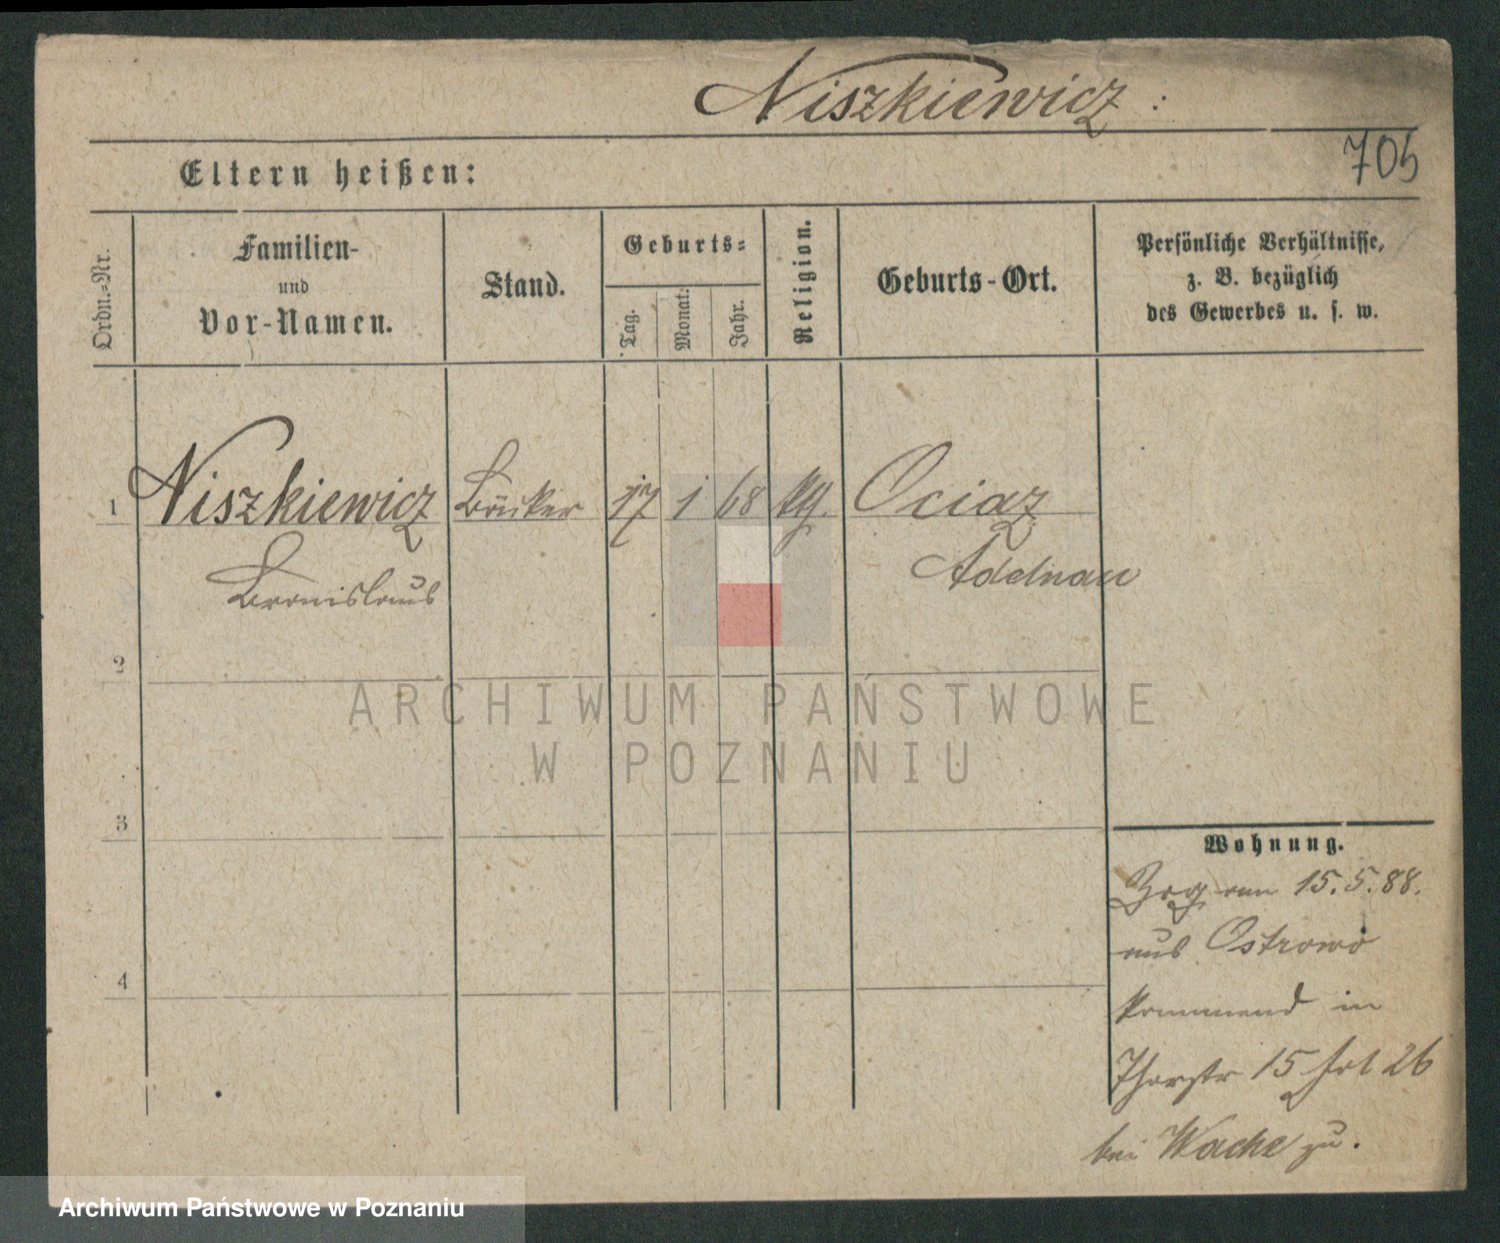 Niszkiewicz:
705
Eltern heißen:
Ordn.-Nr.
Familien-
und
Vor-Namen.
Stand.
Geburts-
Tag.
Monat.
Jahr.
Religion.
Geburts-Ort.
Persönliche Verhältnisse,
z. B. bezüglich
des Gewerbes u. s. w.
1 Niszkiewicz Bäcker 17 1 68 Oci­az
Bronislaus
Adelnau
2
3
4
Wohnung.
Zzg am 15.5.88.
aus Ostrowo
kommend in
Thorstr 15 fol 26
bei Wache zu.
ARCHIWUM PAŃSTWOWE
W POZNANIU
Archiwum Państwowe w Poznaniu